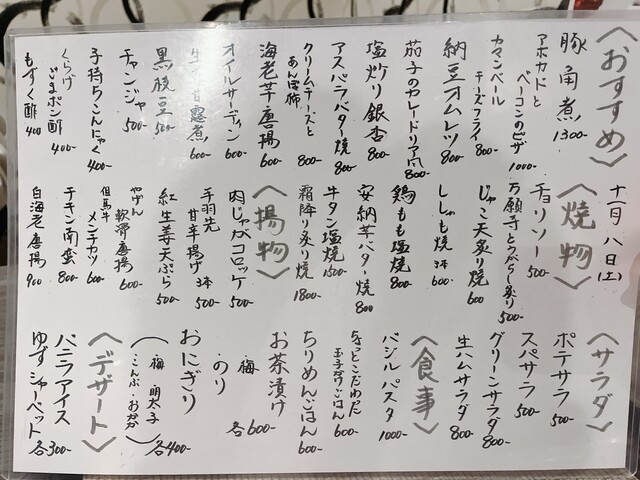 〈おすすめ〉
豚角煮 1300-
アボカドと
ベーコンのピザ 1000-
カマンベール
チーズフライ 800-
納豆オムレツ 800-
茄子のカレードリア風 800-
塩炒り銀杏 800-
アスパラバター焼 800-
クリームチーズと
あんぽ柿 800-
海老芋唐揚 600-
オイルサーディン 600-
甘露煮 600-
黒枝豆 500-
チャンジャ 500-
子持ちこんにゃく 400-
くらげ
ごまポン酢 400-
もずく酢 400
十一月八日(土)
〈焼物〉
チョリソー 500-
万願寺とうがらし炙り 500-
じゃこ天炙り焼 600
ししゃも焼 3本 600-
鶏もも塩焼 800-
安納芋バター焼 800
牛タン塩焼 1500-
霜降り炙り焼 1800-
〈揚物〉
肉じゃがコロッケ 500-
手羽先
甘辛揚げ 3本 500-
紅生姜天ぷら 500-
やげん
軟骨唐揚 600-
但馬牛
メンチカツ 600
チキン南蛮 800-
白海老唐揚 900
〈サラダ〉
ポテサラ 500-
スパサラ 500
グリーンサラダ 800-
生ハムサラダ 800-
〈食事〉
バジルパスタ 1000-
ちょっとこだわった
玉子かけごはん 600-
ちりめんごはん 600-
お茶漬け 600-
・梅
・のり 各
おにぎり
(・梅・明太子
・こんぶ・おかか) 各400-
〈デザート〉
バニラアイス
ゆずシャーベット 各300-